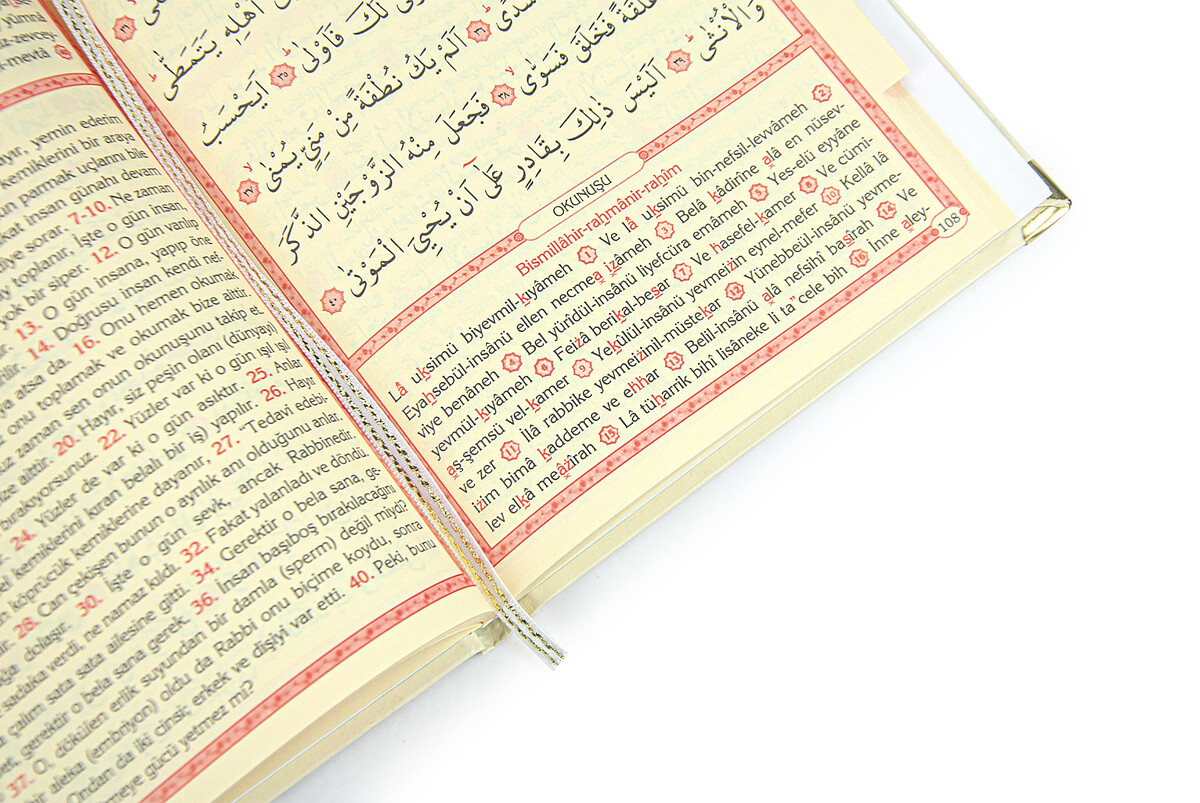 yümna
z-zevcey-
k-mevtâ
ayır, yemin ederim
kemiklerini bir araya
un parmak uçlarını bile
akat insan günahı devam
diye sorar. 7-10. Ne zaman
toplanır, İşte o gün insan,
yok bir siper. 12. O gün varılıp
13. O gün insana, yapıp öne
14. Doğrusu insan kendi nef-
atsa da. 16. Onu hemen okumak
onu toplamak ve okumak bize aittir.
zaman sen onun okunuşunu takip et.
aittir. 20. Hayır, siz peşin olanı (dünyayı)
bırakıyorsunuz. 22. Yüzler var ki o gün ışıl ışıl
24. Yüzler de var ki o gün asıktır. 25. Anlar
kemiklerini kıran belalı bir iş) yapılır. 26. Hayır
köprücük kemiklerine dayanır, 27. "Tedavi edebi-
28. Can çekişen bunun o ayrılık anı olduğunu anlar.
dolaşır. 30. İşte o gün sevk, ancak Rabbinedir.
sadaka verdi, ne namaz kıldı. 32. Fakat yalanladı ve döndü.
çalım sata sata ailesine gitti. 34. Gerektir o bela sana, ge-
gerektir o bela sana gerek. 36. İnsan başıboş bırakılacağını
37. O, dökülen erlik suyundan bir damla (sperm) değil miydi?
bir aleka (embriyon) oldu da Rabbi onu biçime koydu, sonra
Ondan da iki cinsi; erkek ve dişiyi var etti. 40. Peki, bunu
meye gücü yetmez mi?
اَهْلِهٖ يَتَمَطّٰى
لَكَ فَاَوْلٰى ﴿٣٥﴾ اَيَحْسَبُ
سُدًى ﴿٣٦﴾ اَلَمْ يَكُ نُطْفَةً مِنْ مَنِيٍّ يُمْنٰى ﴿٣٧﴾
عَلَقَةً فَخَلَقَ فَسَوّٰى ﴿٣٨﴾ فَجَعَلَ مِنْهُ الزَّوْجَيْنِ الذَّكَرَ
وَالْاُنْثٰى ﴿٣٩﴾ اَلَيْسَ ذٰلِكَ بِقَادِرٍ عَلٰٓى اَنْ يُحْيِيَ الْمَوْتٰى ﴿٤٠﴾
OKUNUŞU
Bismillâhir-rahmânir-rahîm
Lâ uksimü biyevmil-kıyâmeh 1 Ve lâ uksimü bin-nefsil-levvâmeh 2
Eyahsebül-insânü ellen necmea izâmeh 3 Belâ kâdirîne alâ en nüsev-
viye benâneh 4 Bel yürîdül-insânü liyefcüra emâmeh 5 Yes-elü eyyâne
yevmül-kıyâmeh 6 Feizâ berikal-besar 7 Ve hasefel-kamer 8 Ve cümi-
aş-şemsü vel-kamer 9 Yekülül-insânü yevmeizin eynel-mefer 10 Kellâ lâ
ve zer 11 İlâ rabbike yevmeizinil-müstekar 12 Yünebbeül-insânü yevme-
izim bimâ kaddeme ve ehhar 13 Belil-insânü alâ nefsihî basîrah 14 Ve
lev elkâ meâzîrah 15 Lâ tüharrik bihî lisâneke li ta"cele bih 16 İnne aley-
108